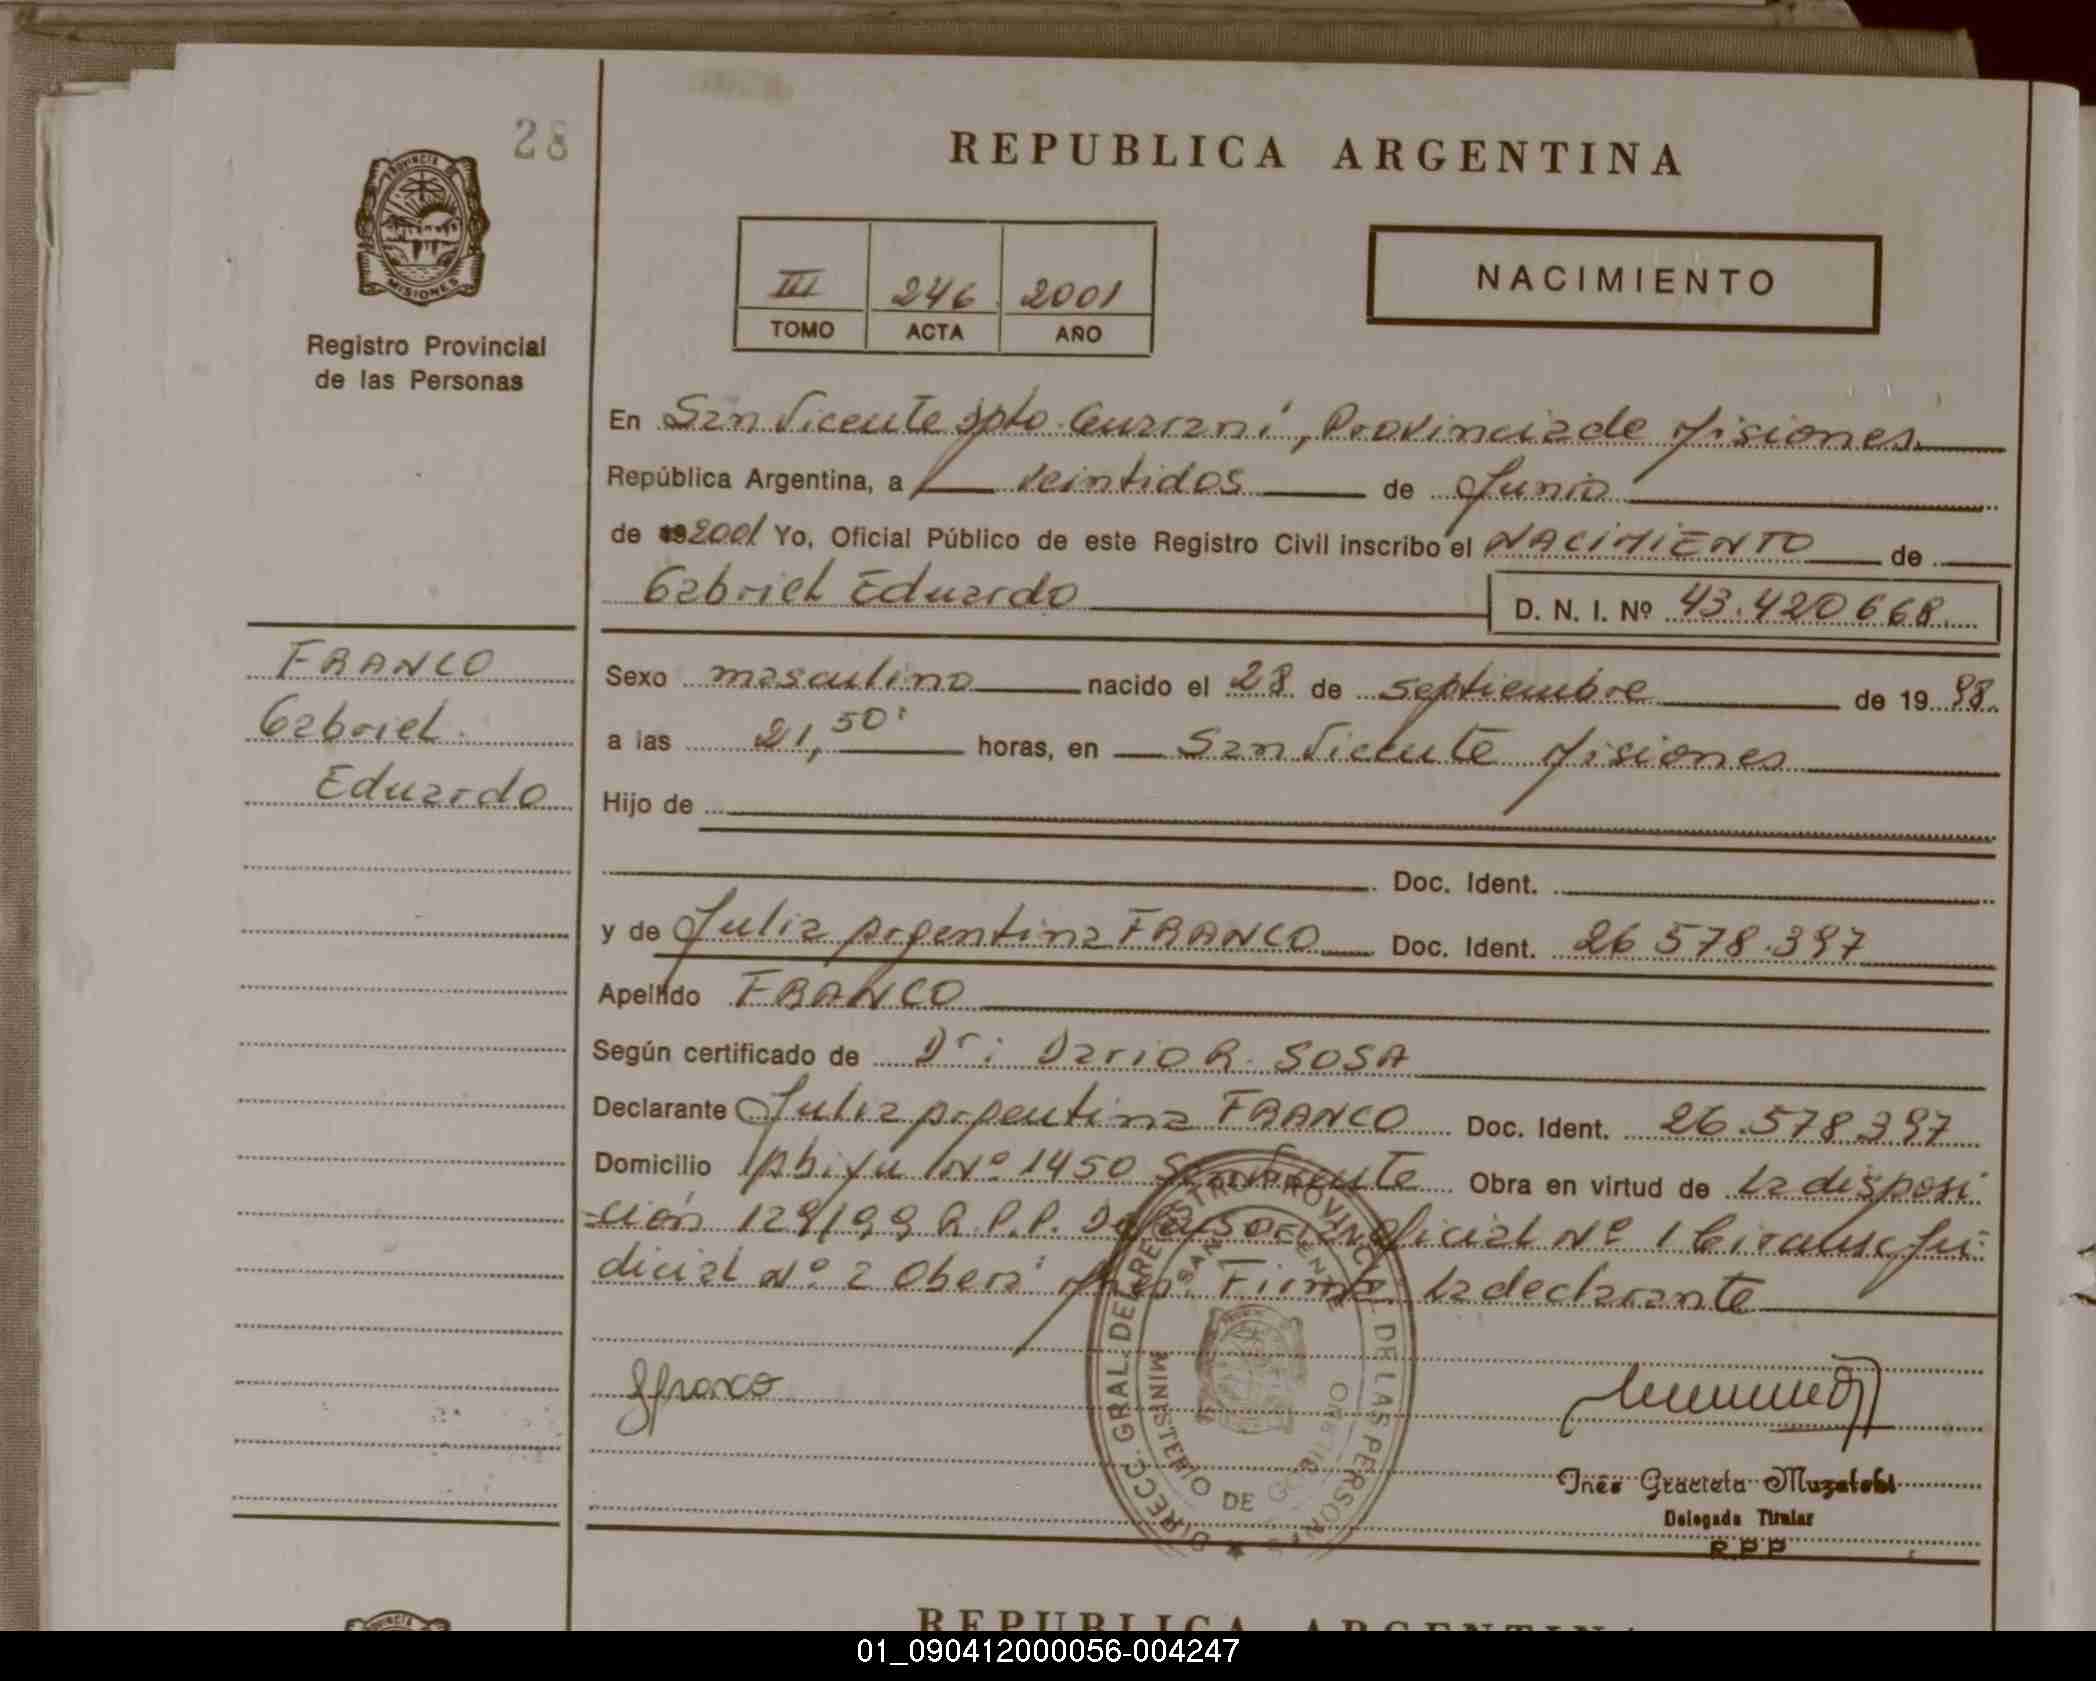 28
PROVINCIA
MISIONES
Registro Provincial
de las Personas
REPUBLICA ARGENTINA
III 246 2001
TOMO ACTA AÑO
NACIMIENTO
En San Vicente Dpto. Guaraní, Provincia de Misiones
República Argentina, a veintidos de Junio
de 19 2001 Yo, Oficial Público de este Registro Civil inscribo el NACIMIENTO de
Gabriel Eduardo D. N. I. Nº 43.420668
FRANCO
Gabriel
Eduardo
Sexo masculino nacido el 28 de septiembre de 19 98
a las 21,50' horas, en San Vicente Misiones
Hijo de
Doc. Ident.
y de Julia Argentina FRANCO Doc. Ident. 26 578.397
Apellido FRANCO
Según certificado de Dr: Dario R. SOSA
Declarante Julia Argentina FRANCO Doc. Ident. 26.578.397
Domicilio Nº 1450 San Vicente Obra en virtud de la disposi
-ción 129/99 R.P.P. Oficial Nº 1 Judicial
dicial Nº 2 Oberá Mnes. Firma la declarante
DIRECC. GRAL. DE REGISTRO PROVINCIAL DE LAS PERSONAS
SAN VICENTE
MINISTERIO DE GOBIERNO
JFranco
Inés Graciela
Delegada Titular
R.P.P
REPUBLICA ARGENTINA
01_090412000056-004247